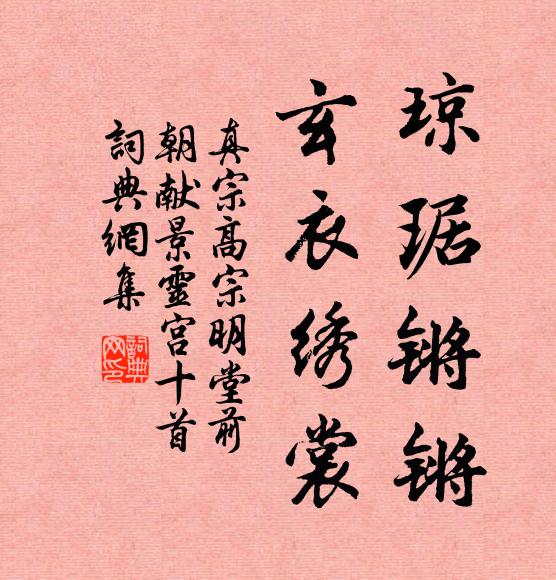 琼琚锵锵
玄衣绣裳
真宗高宗明堂前
朝献景靈宫十首
詞典網集
詞典網印